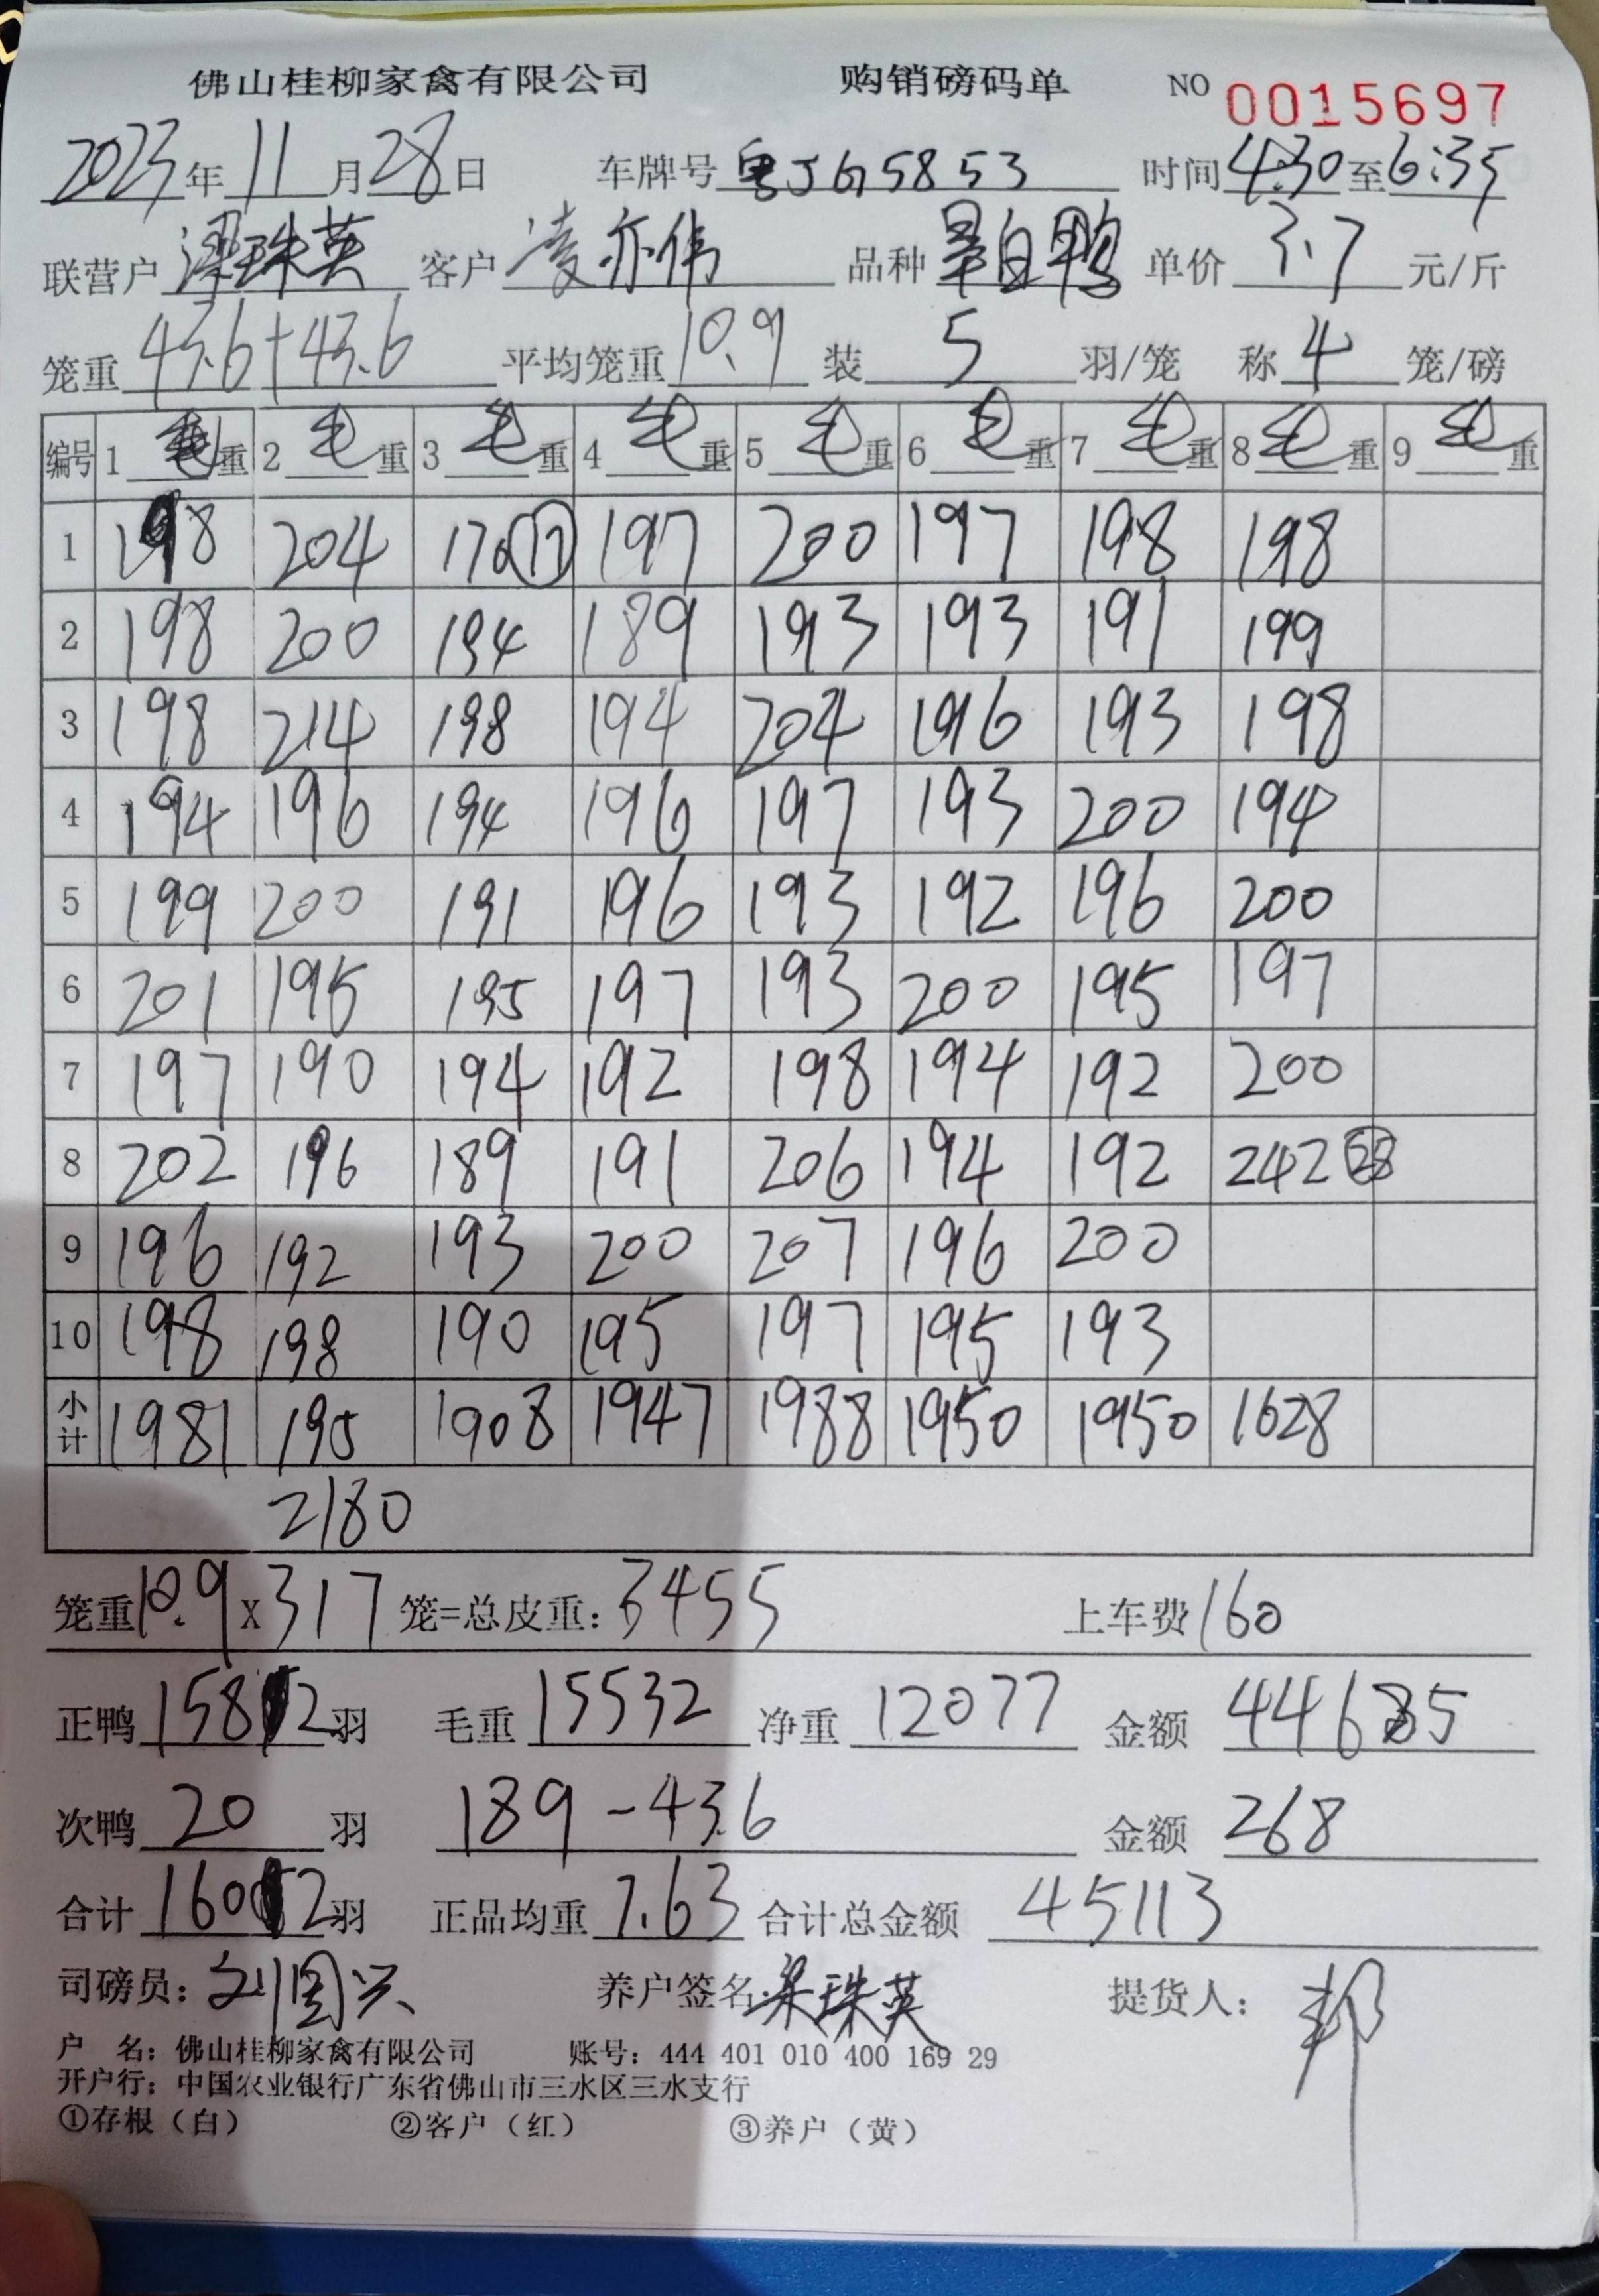 佛山桂柳家禽有限公司 购销磅码单 NO 0015697
2023年11月28日 车牌号粤JG5853 时间4:30至6:35
联营户梁珠英 客户凌亦伟 品种旱白鸭 单价3.7元/斤
笼重43.6+43.6 平均笼重10.9 装5羽/笼 称4笼/磅
编号 1毛重 2毛重 3毛重 4毛重 5毛重 6毛重 7毛重 8毛重 9毛重
1 198 204 170⑰ 197 200 197 198 198
2 198 200 194 189 193 193 191 199
3 198 214 198 194 204 196 193 198
4 194 196 194 196 197 193 200 194
5 199 200 191 196 193 192 196 200
6 201 195 195 197 193 200 195 197
7 197 190 194 192 198 194 192 200
8 202 196 189 191 206 194 192 242㉘
9 196 192 193 200 207 196 200
10 198 198 190 195 197 195 193
小计 1981 195 1908 1947 1988 1950 1950 1628
2180
笼重10.9X317笼=总皮重:3455 上车费160
正鸭1582羽 毛重15532 净重12077 金额44685
次鸭20羽 189-43.6 金额268
合计1602羽 正品均重7.63 合计总金额45113
司磅员:刘国兴 养户签名:梁珠英 提货人:邦
户 名:佛山桂柳家禽有限公司 账号:444 401 010 400 169 29
开户行:中国农业银行广东省佛山市三水区三水支行
①存根(白) ②客户(红) ③养户(黄)